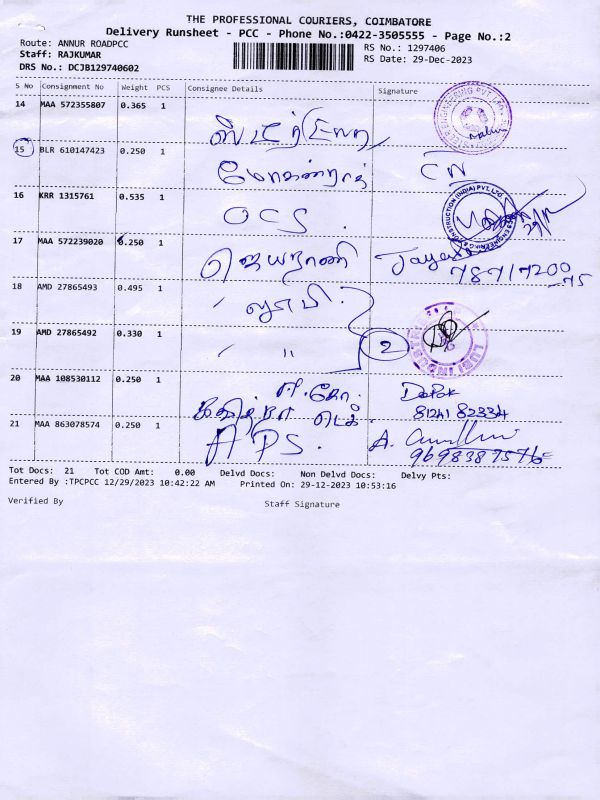 THE PROFESSIONAL COURIERS, COIMBATORE
Delivery Runsheet - PCC - Phone No.:0422-3505555 - Page No.:2
Route: ANNUR ROADPCC
RS No.: 1297406
Staff: RAJKUMAR
RS Date: 29-Dec-2023
DRS No.: DCJB129740602
S No Consignment No Weight PCS Consignee Details Signature
14 MAA 572355807 0.365 1
15 BLR 610147423 0.250 1
மோகன்ராஜ்
16 KRR 1315761 0.535 1
OCS.
17 MAA 572239020 0.250 1
ஜெயராணி
78717200
-75
18 AMD 27865493 0.495 1
லுபி.
19 AMD 27865492 0.330 1
" "
2
20 MAA 108530112 0.250 1
Depak
81241 82334
21 MAA 863078574 0.250 1
APS.
A.
9698387576
Tot Docs: 21 Tot COD Amt: 0.00 Delvd Docs: Non Delvd Docs: Delvy Pts:
Entered By :TPCPCC 12/29/2023 10:42:22 AM Printed On: 29-12-2023 10:53:16
Verified By Staff Signature